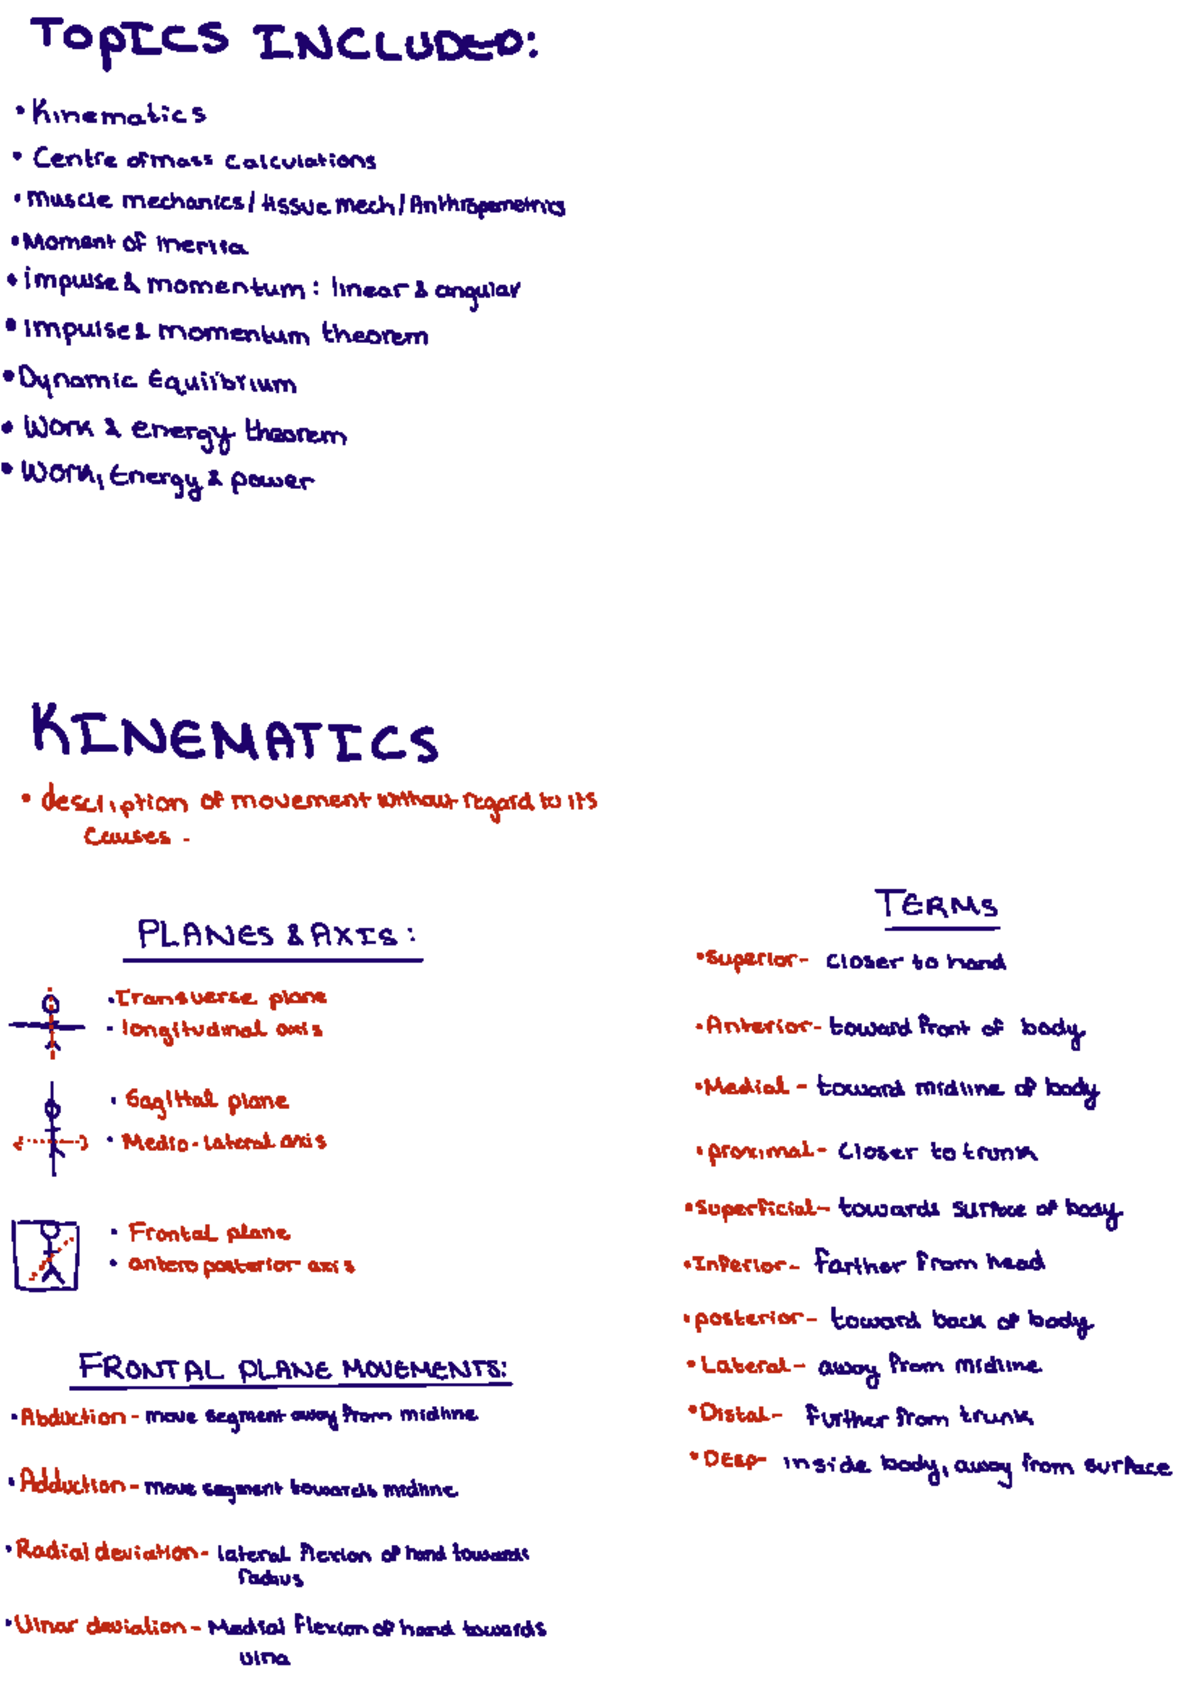 TOPICS INCLUDED:
• Kinematics
• Centre of mass calculations
• muscle mechanics / tissue mech / Anthropometrics
• Moment of inertia
• impulse & momentum : linear & angular
• Impulse & momentum theorem
• Dynamic Equilibrium
• Work & energy theorem
• Work, Energy & power
KINEMATICS
• description of movement without regard to its
causes -
PLANES & AXIS :
• Transverse plane
• longitudinal axis
• Sagittal plane
• Medio-lateral axis
• Frontal plane
• antero posterior axis
FRONTAL PLANE MOVEMENTS:
• Abduction - move segment away from midline
• Adduction - move segment towards midline
• Radial deviation - lateral flexion of hand towards
radius
• Ulnar deviation - Medial flexion of hand towards
ulna
TERMS
• Superior - closer to hand
• Anterior - toward front of body
• Medial - toward midline of body
• proximal - closer to trunk
• Superficial - towards surface of body
• Inferior - farther from head
• posterior - toward back of body
• Lateral - away from midline
• Distal - further from trunk
• DEEP - inside body, away from surface